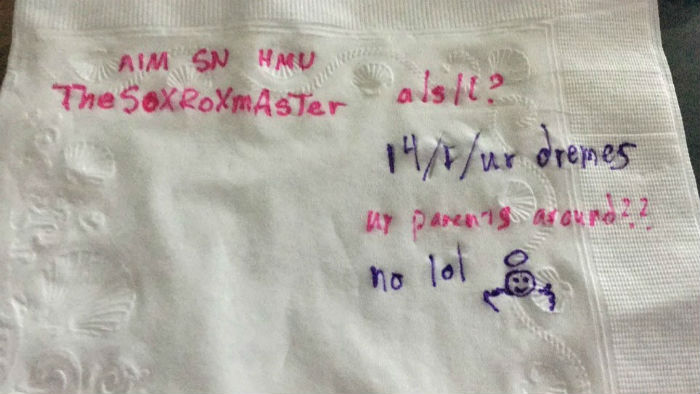 AIM SN HMU
TheSoXRoXmAsTer a/s/l?
14/F/ur dremes
ur parents around??
no lol